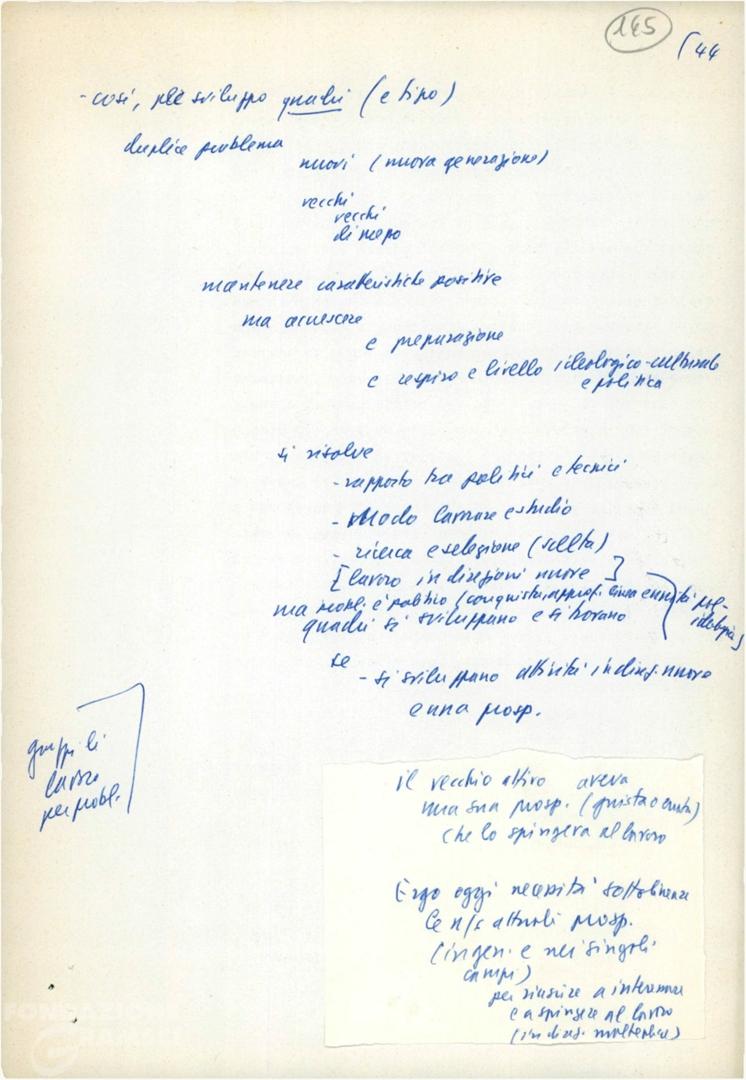 145
44
- così, per sviluppo quadri (e tipo)
duplice problema
nuovi (nuova generazione)
vecchi
vecchi
di mezzo
mantenere caratteristiche positive
ma accrescere
e preparazione
e respiro e livello ideologico-culturale
e politica
si risolve
- rapporto tra politici e tecnici
- Modo lavorare e studio
- ricerca e selezione (scelta)
[lavoro in direzioni nuove]
ma probl. è politico (conquista, approf. linea e unità pol-
ideologica)
quadri si sviluppano e si trovano
se
- si sviluppano attività in direz. nuove
e una prosp.
gruppi di
lavoro
per probl.
il vecchio attivo aveva
una sua prosp. (giusta o errata)
che lo spingeva al lavoro
Ergo oggi necessità sottolineare
le n/s attuali prosp.
(in gen. e nei singoli
campi)
per riuscire a interessare
e a spingere al lavoro
(in direz. molteplici)
FONDAZIONE